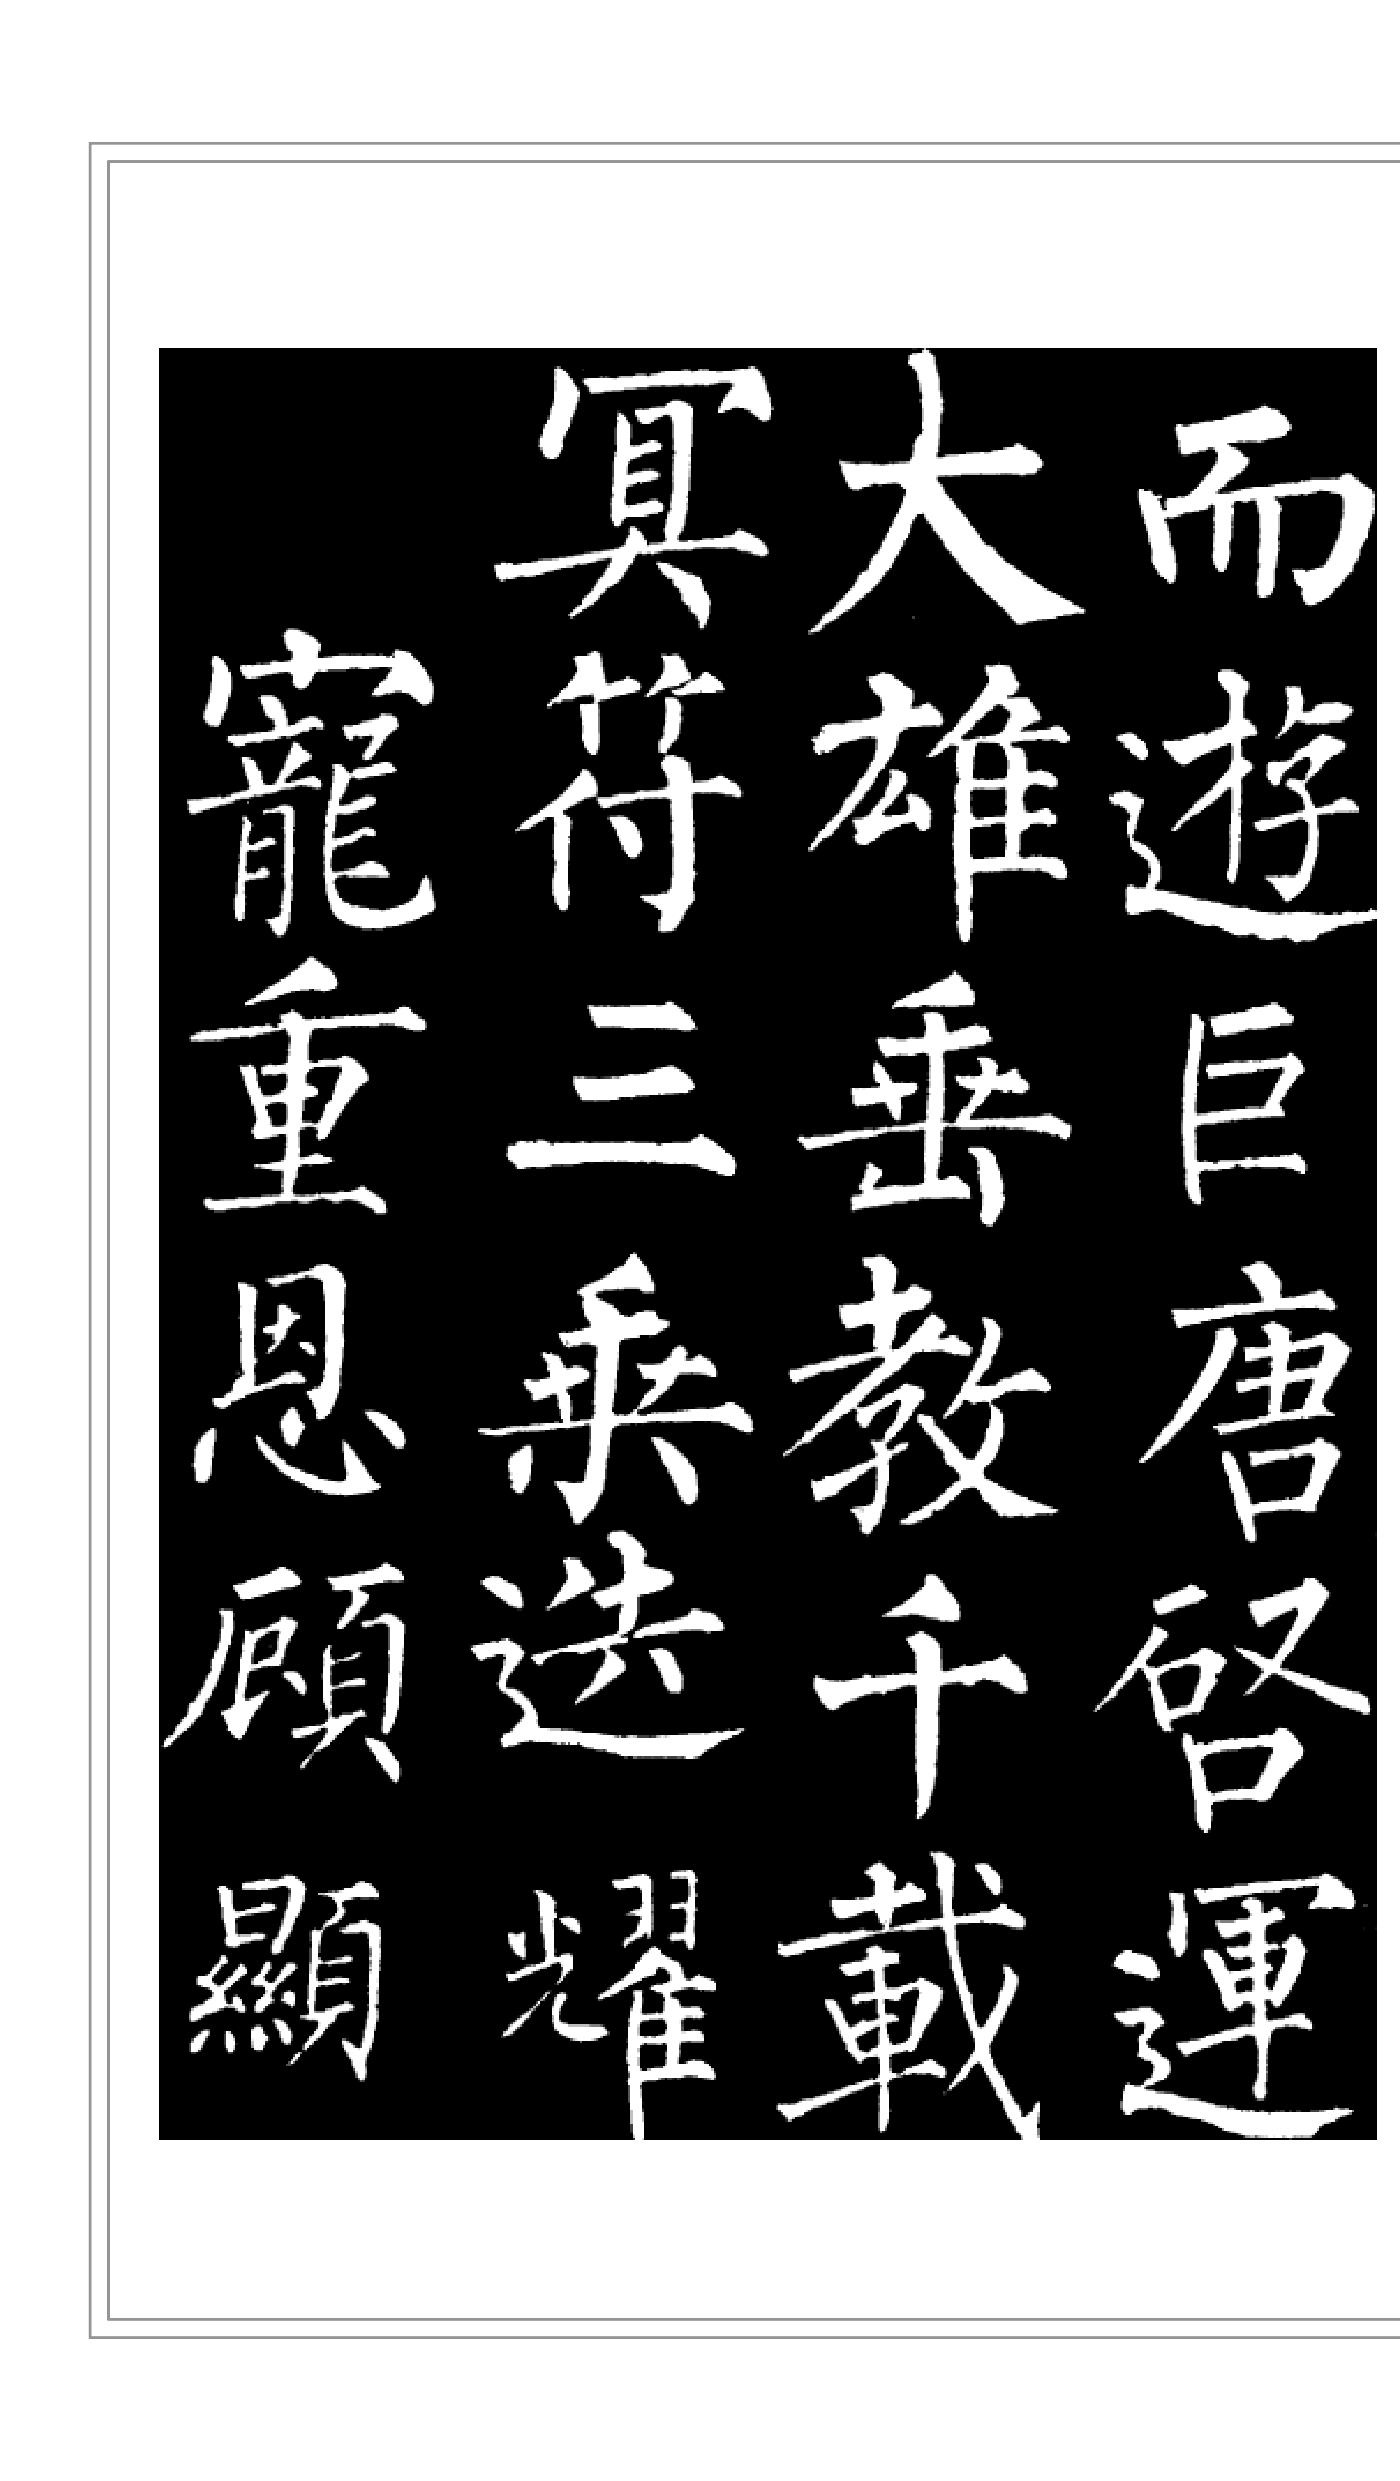 而遊巨唐啓運
大雄垂教千載
冥符三乘迭耀
寵重恩顧顯